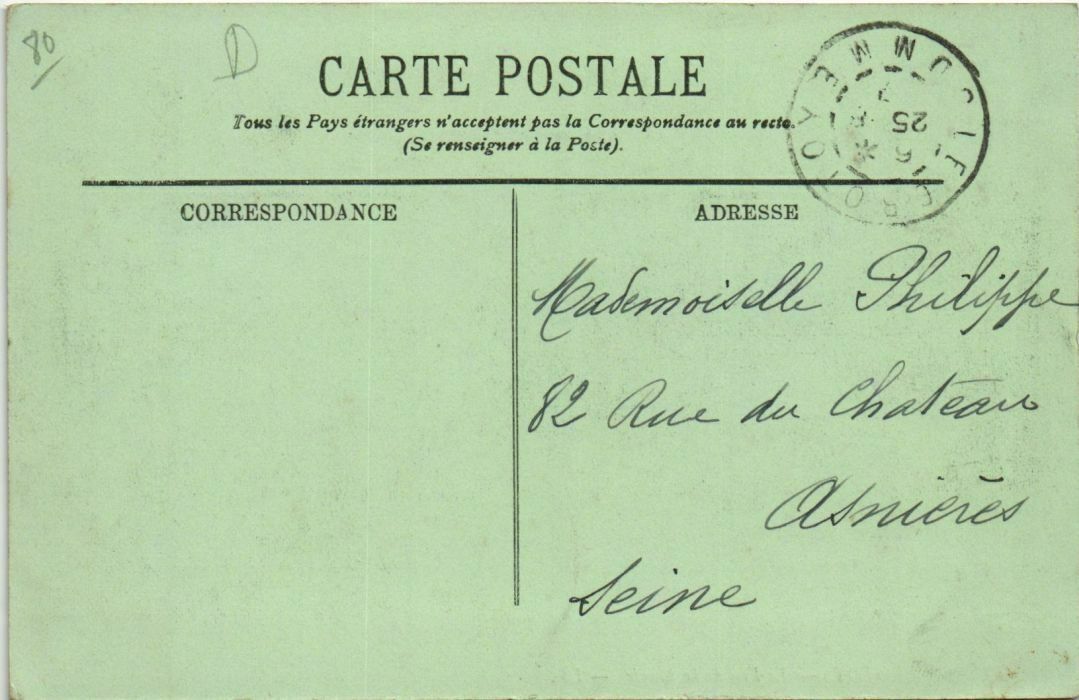 80
D
CARTE POSTALE
Tous les Pays étrangers n'acceptent pas la Correspondance au recto.
(Se renseigner à la Poste).
CORRESPONDANCE
ADRESSE
LE CROTOY
SOMME
25
Mademoiselle Philippe
82 Rue du Chateau
Asnières
Seine